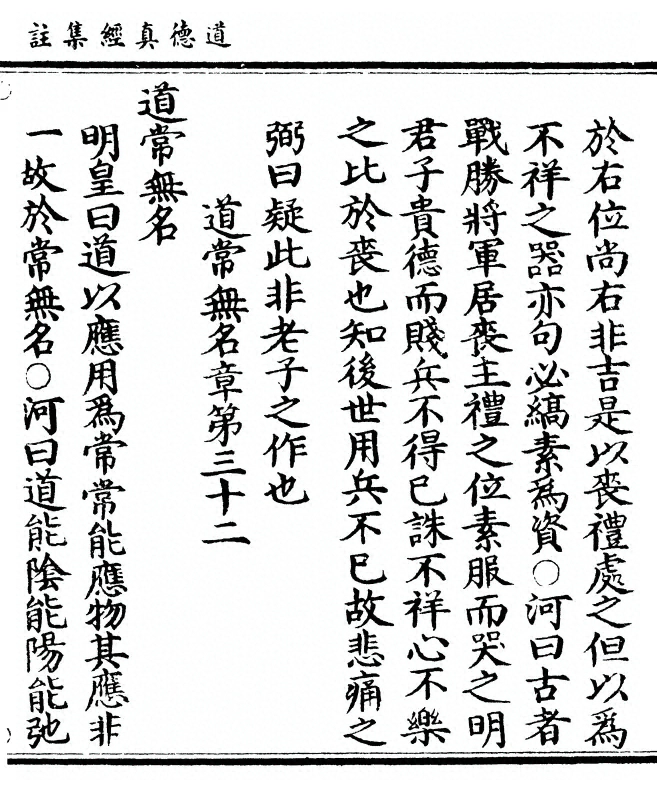 道德真經集註
於右位尚右非吉是以喪禮處之但以爲
不祥之器亦句必縞素爲資○河曰古者
戰勝將軍居喪主禮之位素服而哭之明
君子貴德而賤兵不得已誅不祥心不樂
之比於喪也知後世用兵不已故悲痛之
弼曰疑此非老子之作也
道常無名章第三十二
道常無名
明皇曰道以應用爲常常能應物其應非
一故於常無名○河曰道能陰能陽能弛